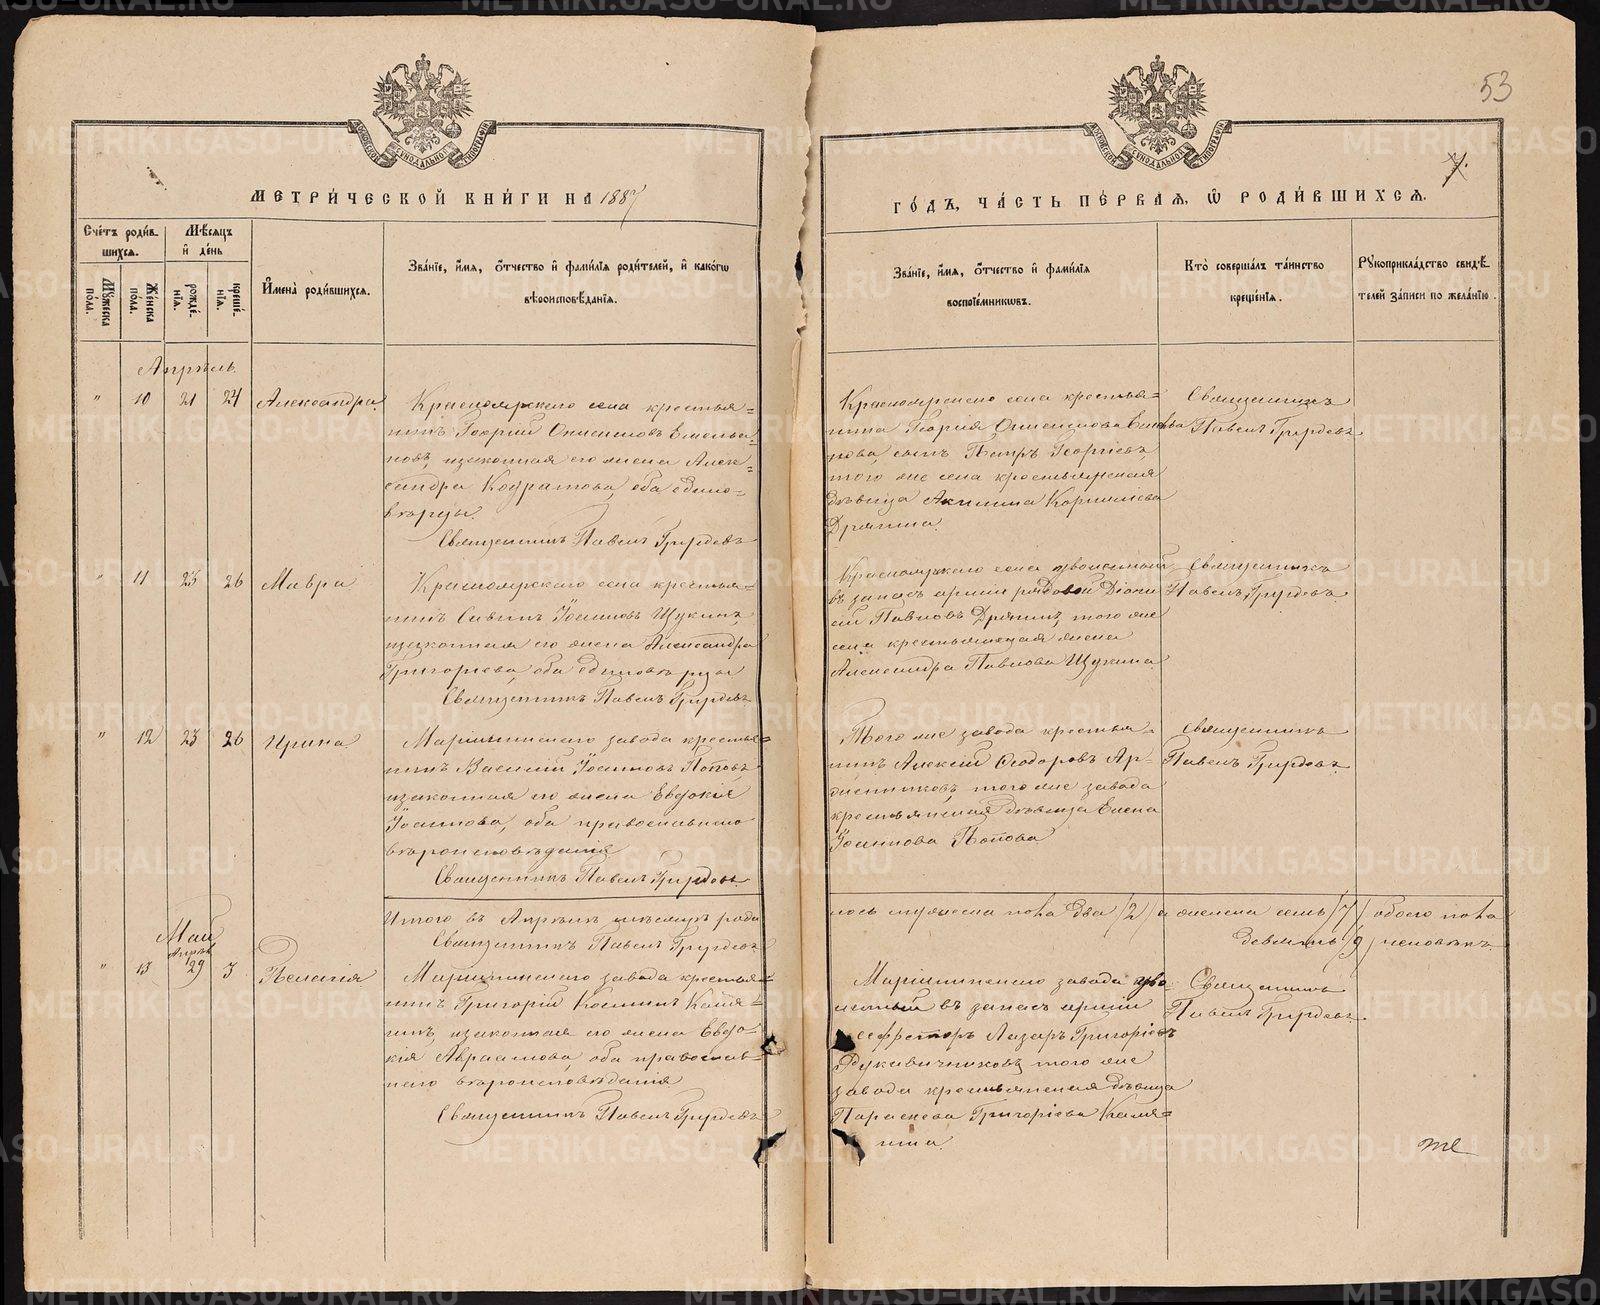 53
7.
МЕТРИ́ЧЕСКОЙ КНИ́ГИ НА 1887
ГО́ДЪ, ЧА́СТЬ ПЕ́РВАЯ, Ѿ РОДИ́ВШИХСЯ.
Сче́тъ роди́в-
шихся.
Мѣ́сяцъ
и҆ де́нь
Мꙋ́жеска
по́ла.
Же́нска
по́ла.
рожде́-
нїя.
креще́-
нїя.
И҆мена̀ роди́вшихся.
Зва́нїе, и҆́мя, ѻ҆́тчество и҆ фами́лїя роди́телей, и҆ како́гѡ
вѣроисповѣ́данїя.
Зва́нїе, и҆́мя, ѻ҆́тчество и҆ фами́лїя
воспрїе́мникѡвъ.
Кто̀ соверша́лъ та́инство
креще́нїя.
Рꙋкоприкла́дство свидѣ́-
телей за́писи по жела́нїю.
Апрѣль.
" 10 21 24 Александра
Красноярскаго села крестья=
нинъ Георгій Онисимовъ Емелья=
новъ, изаконная его жена Алек=
сандра Кодратова, оба едино=
вѣрцы.
Священникъ Павелъ
Красноярскаго села крестья=
нина Георгія Онисимова
нова, сынъ Петръ Георгіевъ,
того же села крестьянская
дѣвица Акилина Корнилова
Дрягина.
Священникъ
Павелъ
" 11 23 26 Мавра
Красноярскаго села крестья=
нинъ Савинъ Іоанновъ Щукинъ,
изаконная его жена Александра
Григорьева, оба единовѣрцы
Священникъ Павелъ
Красноярскаго села уволенный
въ запасъ арміи рядовой Діони
сій Павловъ Дрягинъ, того же
села крестьянская жена
Александра Павлова Щукина
Священникъ
Павелъ
" 12 23 26 Ирина
Маріинскаго завода крестья=
нинъ Василій Іоанновъ Поповъ,
изаконная его жена Евдокія
Іоаннова, оба православнаго
вѣроисповѣданія
Священникъ Павелъ
Того же завода крестья
нинъ Алексій Ѳеодоровъ
того же завода
крестьянская дѣвица Елена
Іоаннова Попова
Священникъ
Павелъ
Итого въ Апрѣлѣ мѣсяцѣ роди
лось мужеска пола два /2/ а женска семь /7/ обоего пола
Священникъ Павелъ
девять /9/ человѣкъ.
Май
Апрѣль
" 13 29 3 Пелагія
Маріинскаго завода крестья=
нинъ Григорій Космин Каля=
гинъ, изаконная его жена Евдо=
кія Авраамова, оба православ=
наго вѣроисповѣданія
Священникъ Павелъ
Маріинскаго завода уво-
ленный въ запасъ арміи
ефрейторъ Лазарь Григорьевъ
Рукавичниковъ, того же
завода крестьянская дѣвица
Параскева Григорьева Каля=
гина.
Священникъ
Павелъ
METRIKI.GASO-URAL.RU